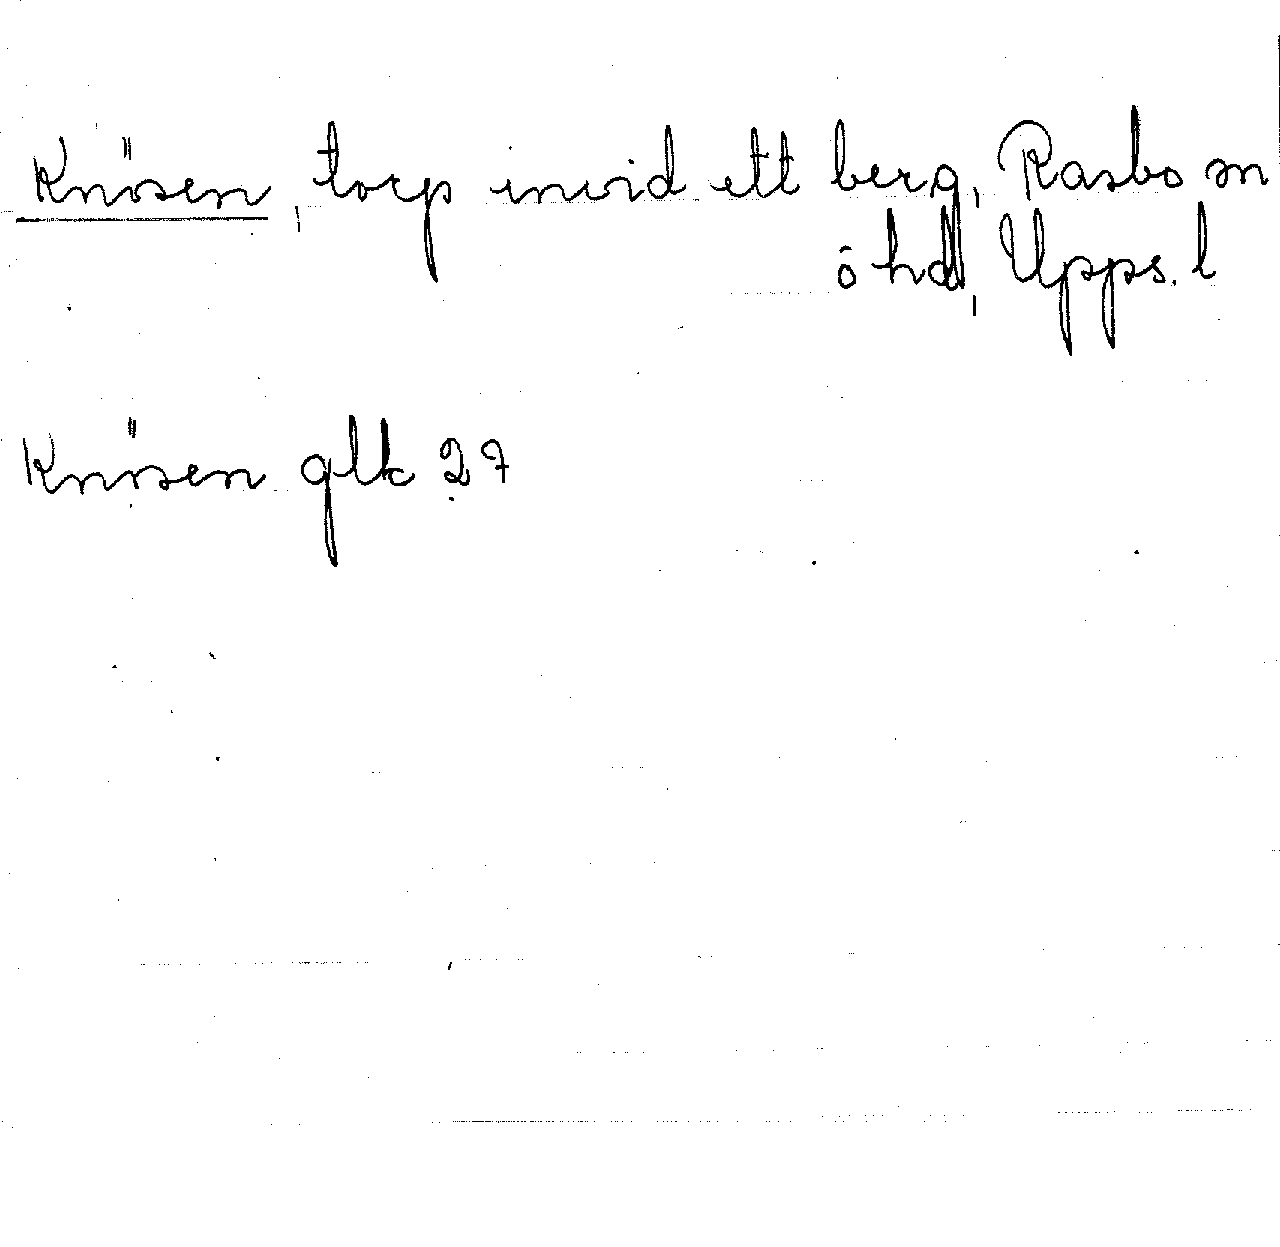 Knösen, torp invid ett berg, Rasbo sn
ö hd, Upps. l
Knösen glk 27